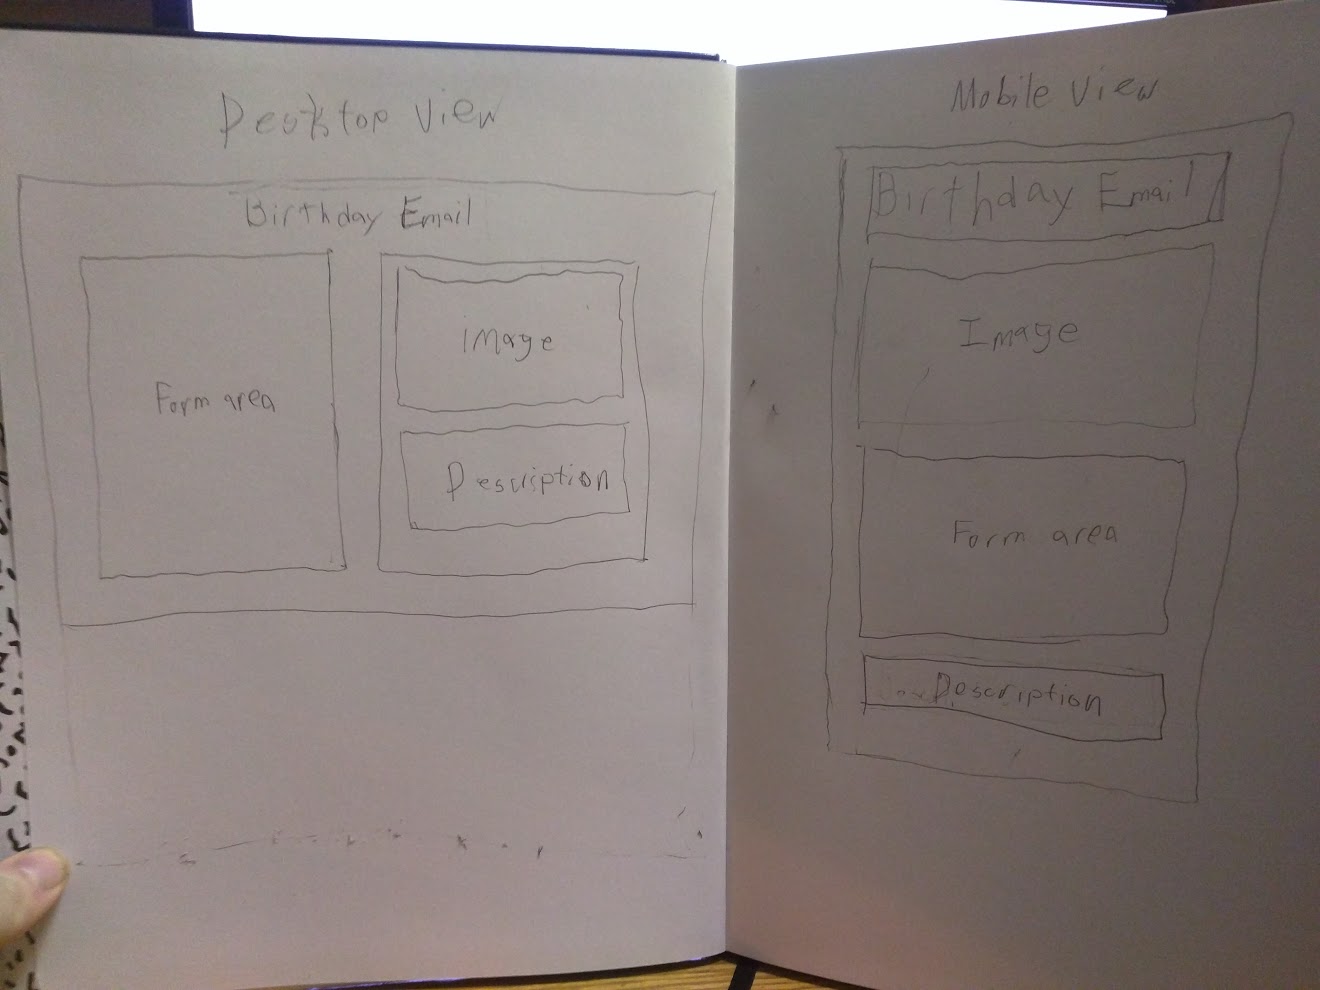 Desktop View
Birthday Email
Form area
image
Description
Mobile View
Birthday Email
Image
Form area
Description